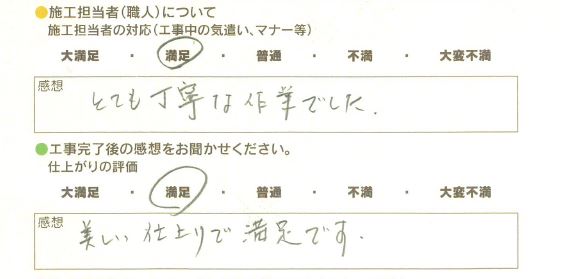 ●施工担当者（職人）について
施工担当者の対応（工事中の気遣い、マナー等）
大満足 ・ 満足 ・ 普通 ・ 不満 ・ 大変不満
感想
とても丁寧な作業でした．
●工事完了後の感想をお聞かせください。
仕上がりの評価
大満足 ・ 満足 ・ 普通 ・ 不満 ・ 大変不満
感想
美しい仕上りで満足です．